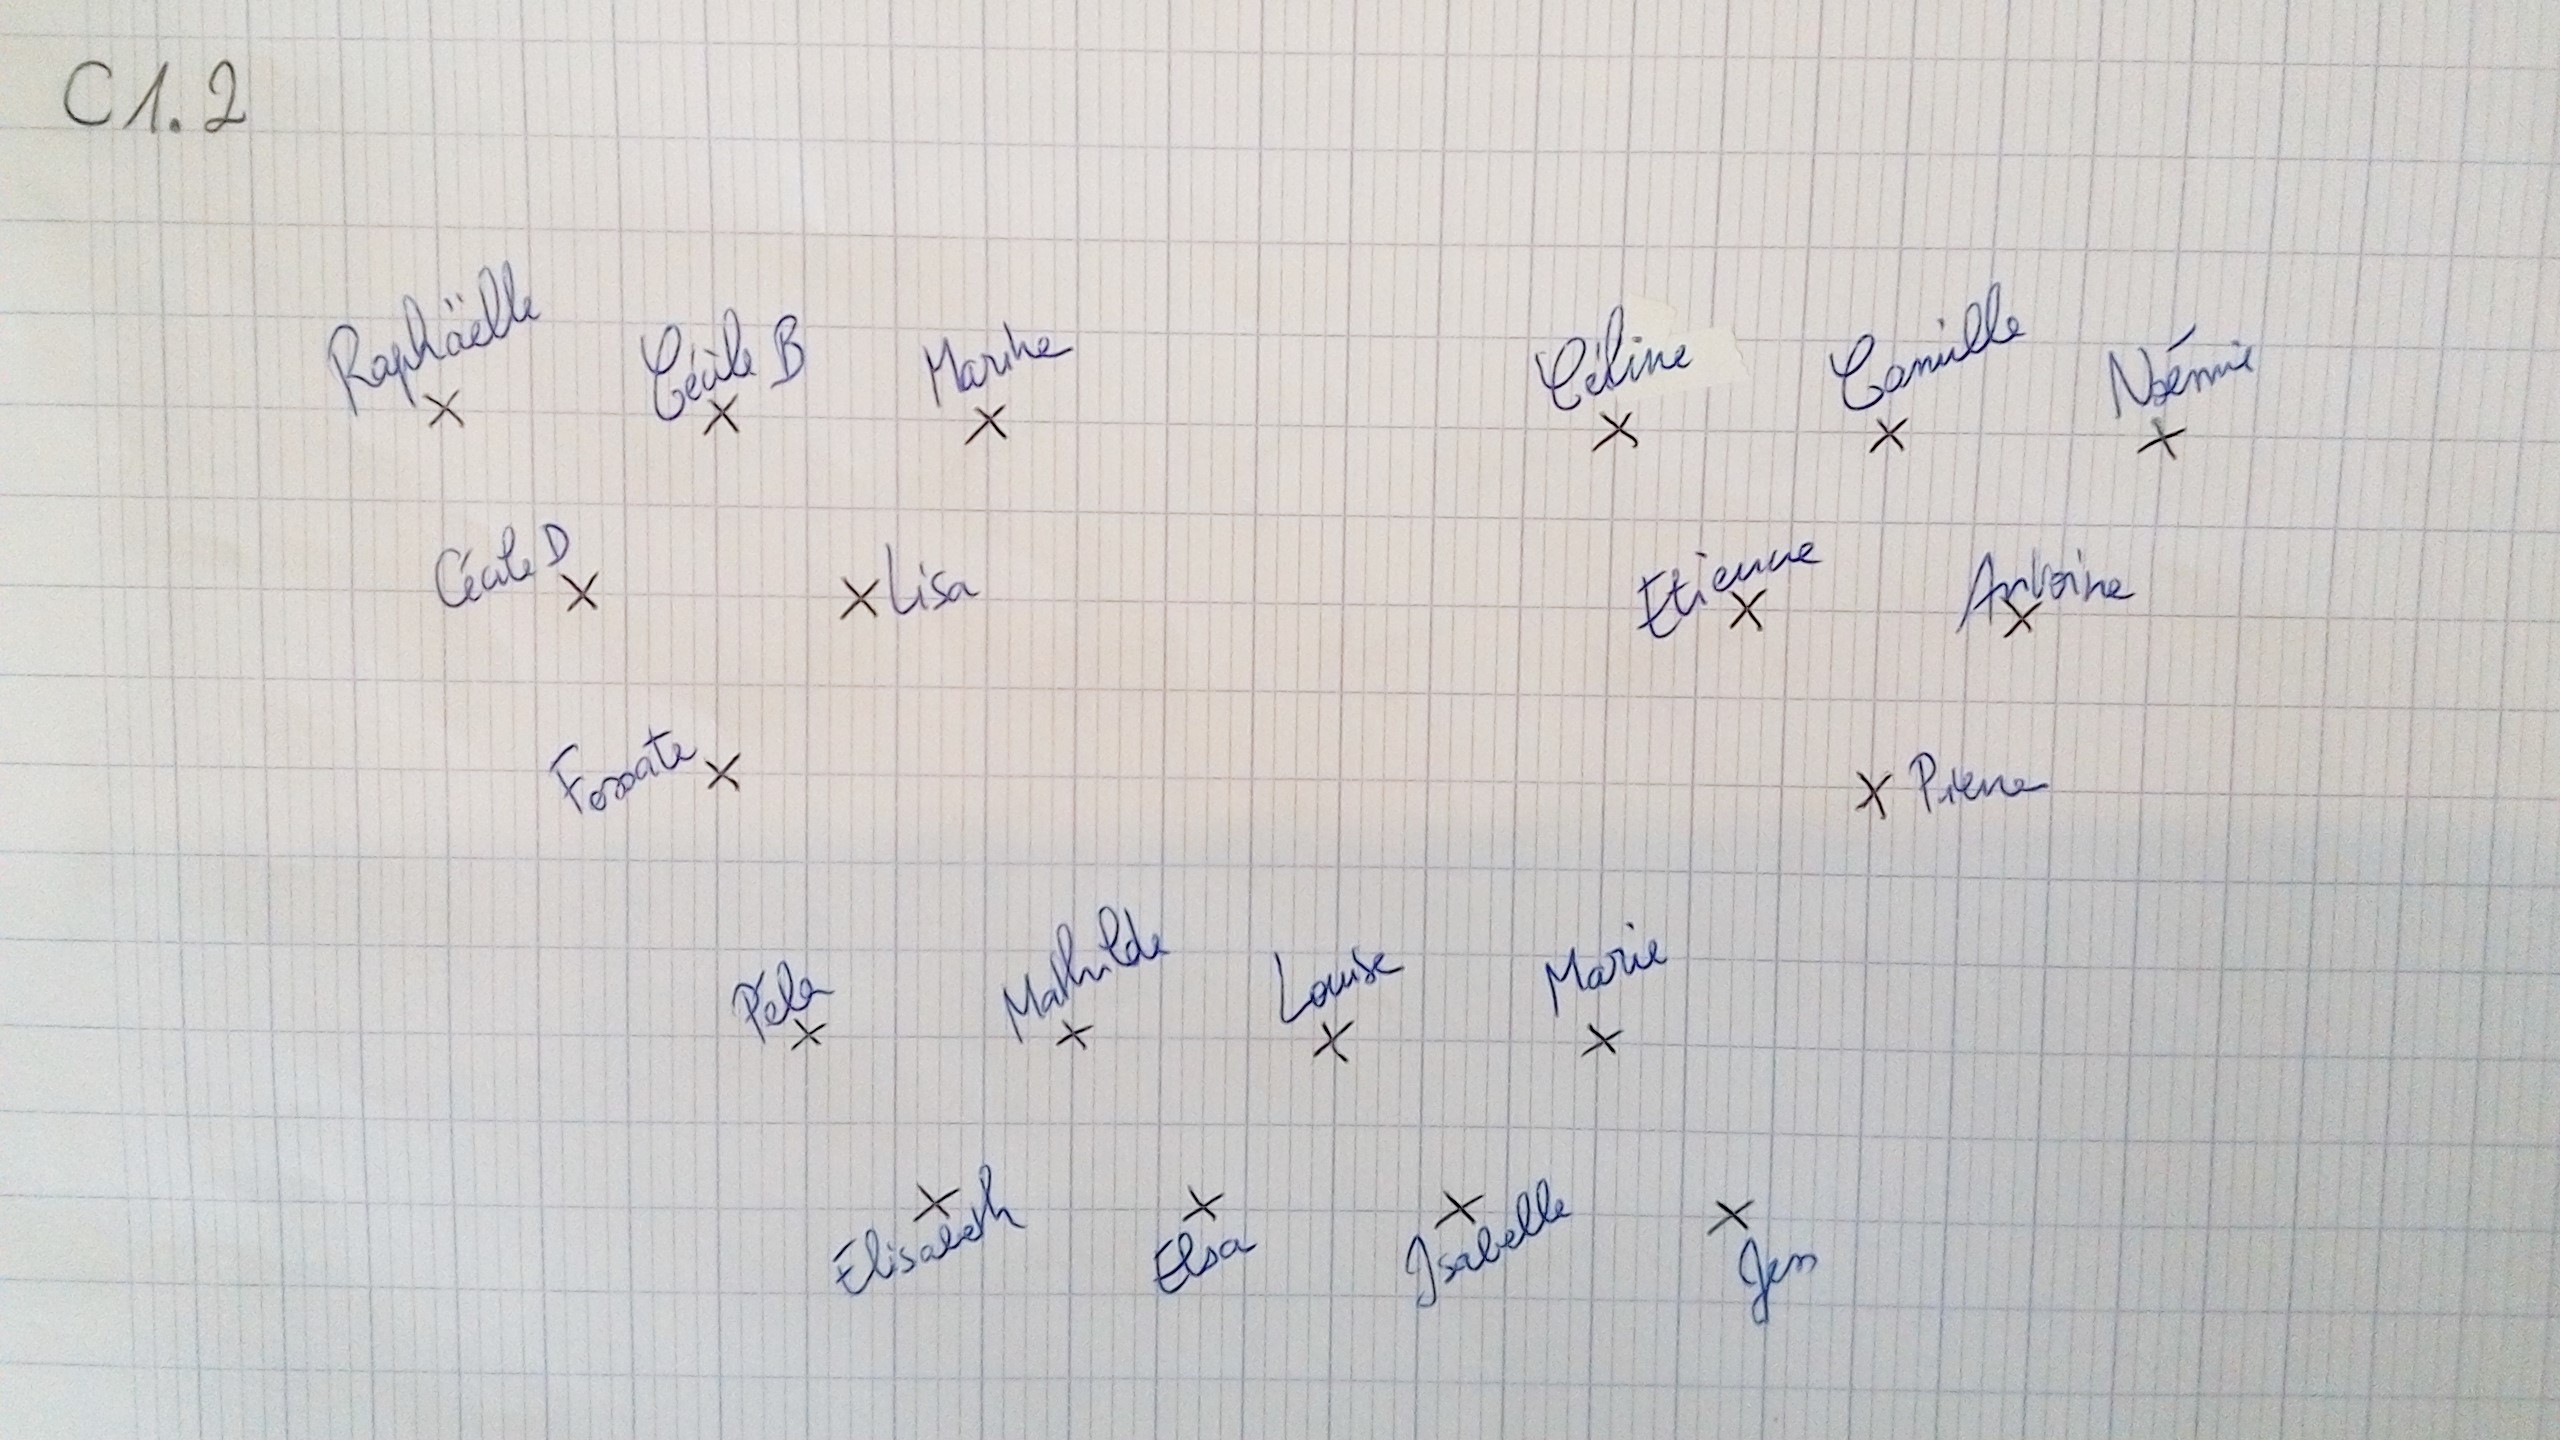 C1.2
Raphäelle Cécile B Marine Céline Camille Noémie
Cécile D Lisa Etienne Antoine
Pierre
Mathilde Louise Marie
Elisabeth Elsa Isabelle Jess